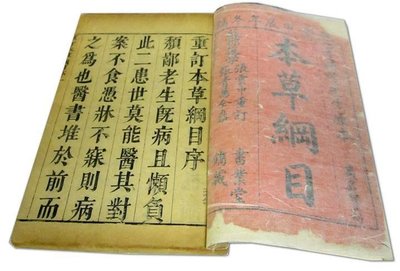 本草綱目
張雲中重訂
書業堂
鐫藏
重訂本草綱目序
頽鄙老生旣病且懶負
此二患世莫能醫其對
案不食憑牀不寐則病
之爲也醫書堆於前而